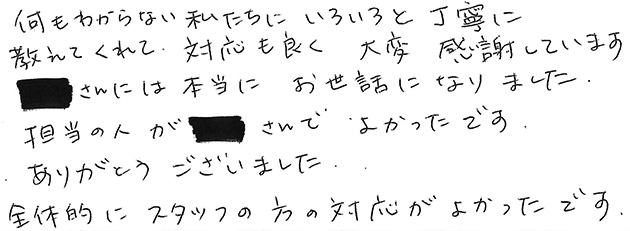 何もわからない私たちに いろいろと 丁寧に
教えてくれて、対応も良く 大変 感謝しています
さんには 本当に お世話になりました.
担当の人が さんで よかったです.
ありがとうございました.
全体的に スタッフの方の対応がよかったです.